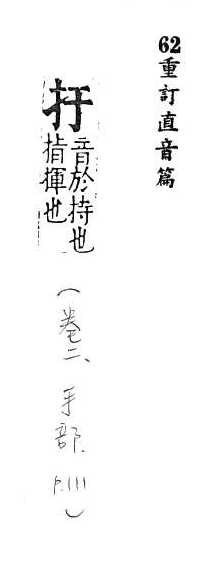 62重訂直音篇
扜
音於持也
指揮也
(卷二、手部.P.111)